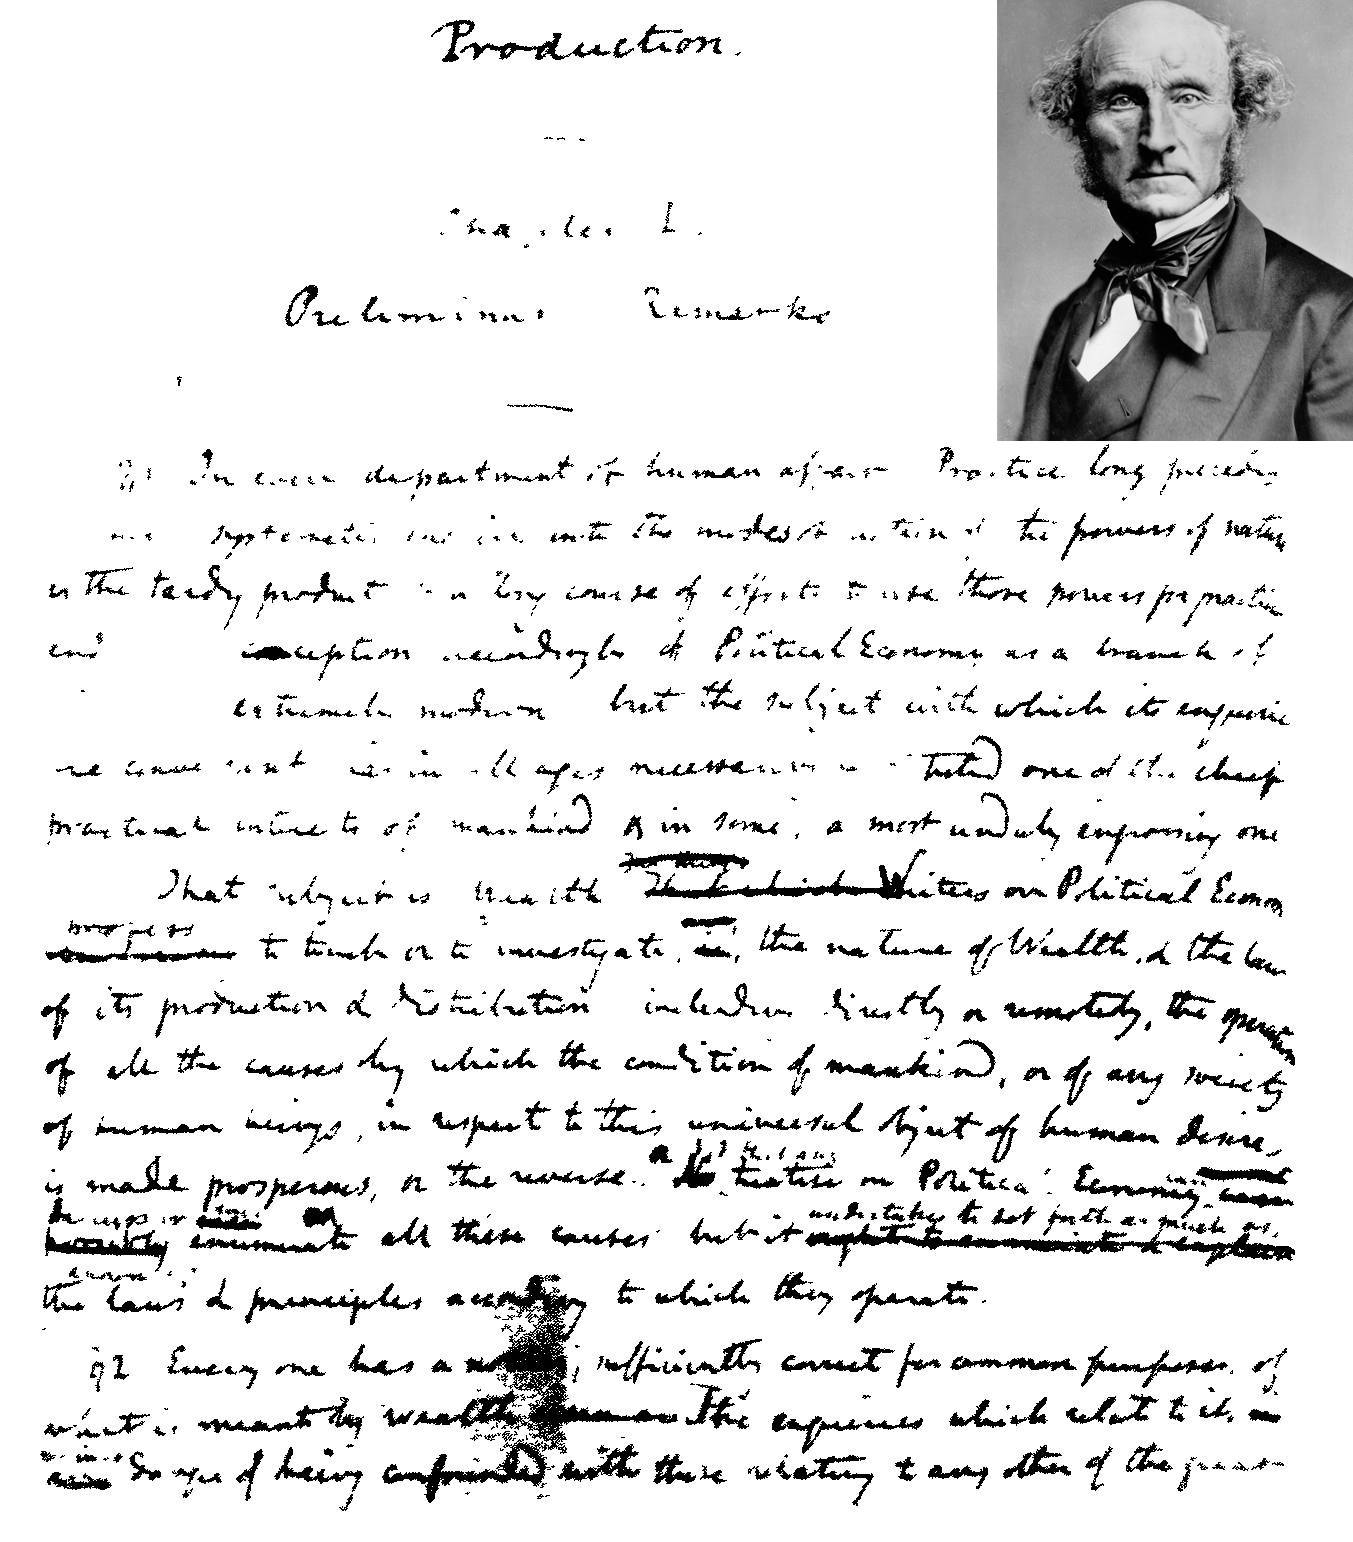 Production.
Chapter I.
Preliminary Remarks
§1 In every department of human affairs Practice long precedes
systematic into the modes of action of the powers of nature
is the tardy product of a long course of efforts to use those powers for practical
ends conception accordingly of Political Economy as a branch of
extremely modern but the subject with which its enquiries
are conversant has in all ages necessarily constituted one of the chief
practical interests of mankind & in some, a most unduly engrossing one
That subject is Wealth Writers on Political Econom
profess to teach or to investigate, the nature of Wealth, & the laws
of its production & distribution including directly or remotely, the operation
of all the causes by which the condition of mankind, or of any society
of human beings, in respect to this universal object of human desire,
is made prosperous, or the reverse. treatise on Political Economy can
discuss or
enumerate all these causes but it undertakes to set forth as much as
the laws & principles according to which they operate.
§2 Every one has a notion, sufficiently correct for common purposes, of
what is meant by wealth The enquiries which relate to it are
in no danger of being confounded with those relating to any other of the great